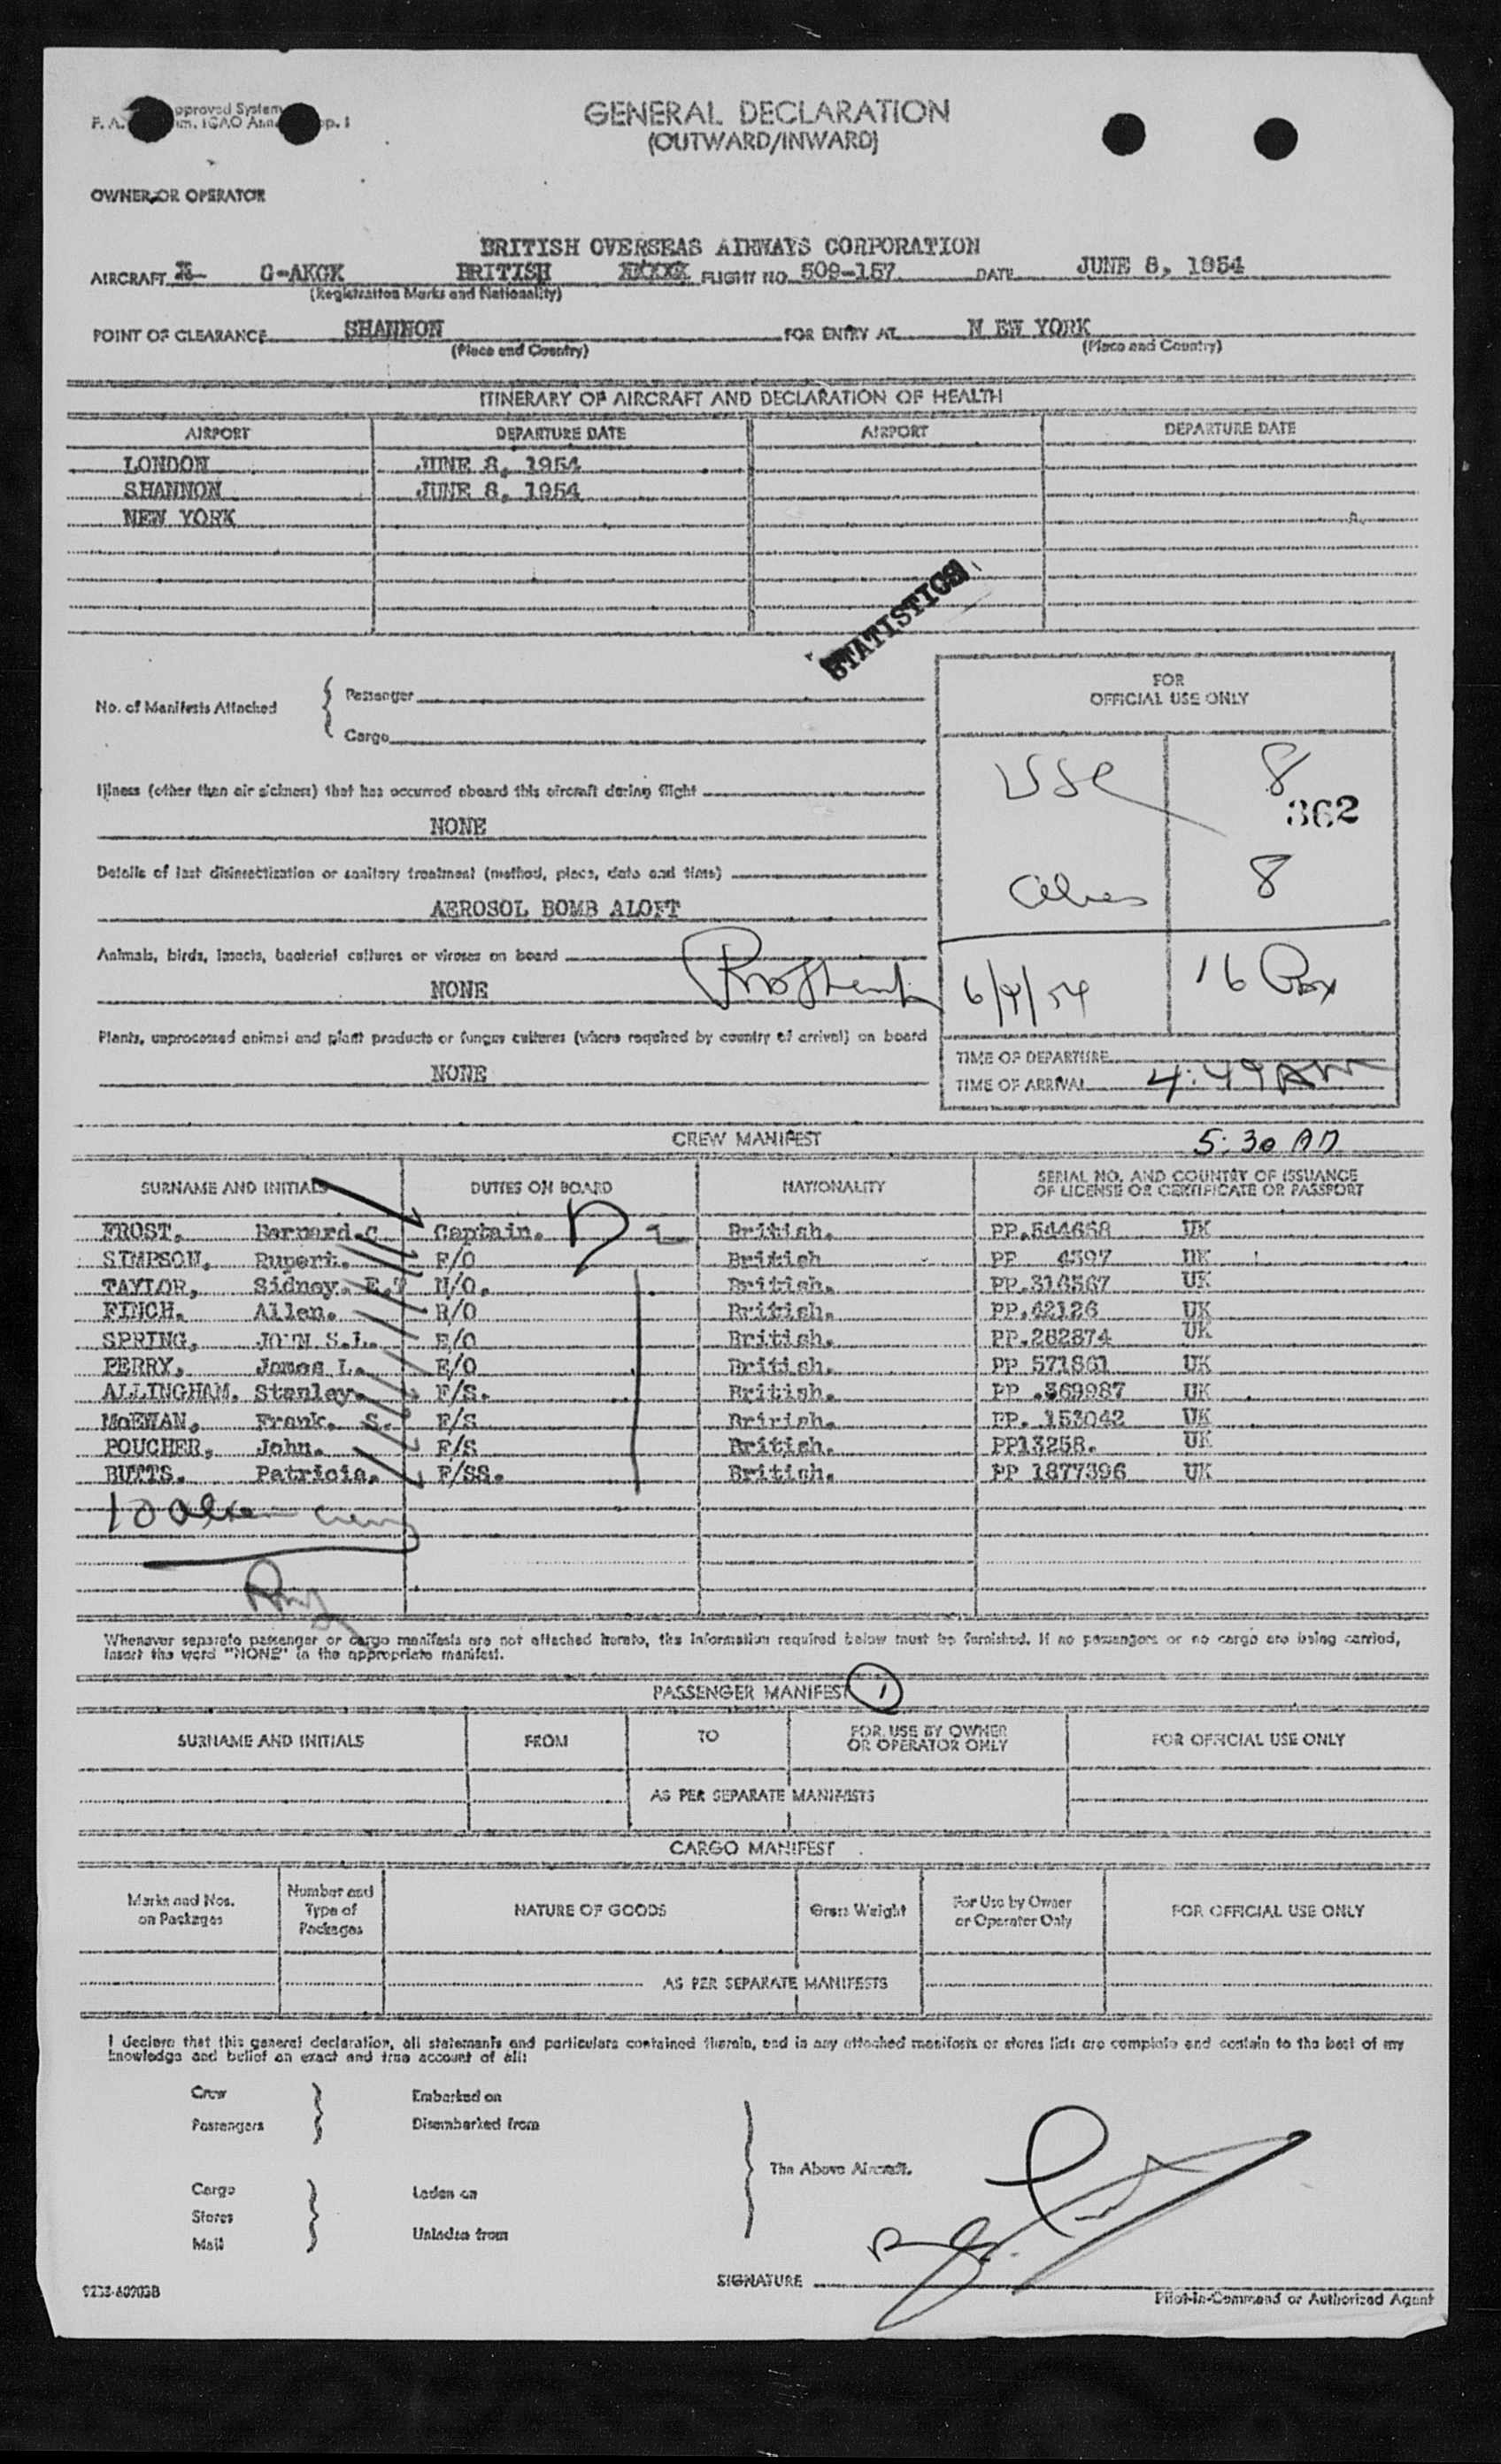 GENERAL DECLARATION
(OUTWARD/INWARD)
OWNER OR OPERATOR
BRITISH OVERSEAS AIRWAYS CORPORATION
AIRCRAFT G-AKGK BRITISH XXXXX FLIGHT NO. 509-157 DATE JUNE 8, 1954
(Registration Marks and Nationality)
POINT OF CLEARANCE SHANNON FOR ENTRY AT N EW YORK
(Place and Country) (Place and Country)
ITINERARY OF AIRCRAFT AND DECLARATION OF HEALTH
AIRPORT DEPARTURE DATE AIRPORT DEPARTURE DATE
LONDON JUNE 8, 1954
SHANNON JUNE 8, 1954
NEW YORK
STATISTICS
No. of Manifests Attached { Passenger
Cargo
FOR
OFFICIAL USE ONLY
USC 8
362
Illness (other than air sickness) that has occurred aboard this aircraft during flight
NONE
Details of last disinsectization or sanitary treatment (method, place, date and time)
AEROSOL BOMB ALOFT
8
Animals, birds, insects, bacterial cultures or viruses on board
NONE
6/9/54 16 Pax
Plants, unprocessed animal and plant products or fungus cultures (where required by country of arrival) on board
NONE
TIME OF DEPARTURE
TIME OF ARRIVAL 4:49 AM
CREW MANIFEST 5:30 AM
SURNAME AND INITIALS DUTIES ON BOARD NATIONALITY SERIAL NO. AND COUNTRY OF ISSUANCE
OF LICENSE OR CERTIFICATE OR PASSPORT
FROST, Bernard.C Captain. British. PP.544658 UK
SIMPSON, Rupert. F/O British PP 4397 UK
TAYLOR, Sidney. E.T N/O. British. PP.316567 UK
FINCH. Allen. R/O British. PP.42126 UK
SPRING, JOHN S.L. E/O British. PP.282874 UK
PERRY, James L. E/O British. PP 571861 UK
ALLINGHAM. Stanley. F/S. British. PP .369987 UK
McEWAN, Frank. S. F/S Brirish. PP. 153042 UK
POUCHER, John. F/S British. PP13258. UK
BUTTS. Patricia. F/SS. British. PP 1877396 UK
10 Alien Crew
Whenever separate passenger or cargo manifests are not attached hereto, the information required below must be furnished. If no passengers or no cargo are being carried,
insert the word "NONE" in the appropriate manifest.
PASSENGER MANIFEST 1
SURNAME AND INITIALS FROM TO FOR USE BY OWNER
OR OPERATOR ONLY FOR OFFICIAL USE ONLY
AS PER SEPARATE MANIFESTS
CARGO MANIFEST
Marks and Nos.
on Packages Number and
Type of
Packages NATURE OF GOODS Gross Weight For Use by Owner
or Operator Only FOR OFFICIAL USE ONLY
AS PER SEPARATE MANIFESTS
I declare that this general declaration, all statements and particulars contained therein, and in any attached manifests or stores lists are complete and contain to the best of my
knowledge and belief an exact and true account of all:
Crew } Embarked on
Passengers } Disembarked from
The Above Aircraft.
Cargo } Laden on
Stores
Mail } Unladen from
SIGNATURE
Pilot-in-Command or Authorized Agent